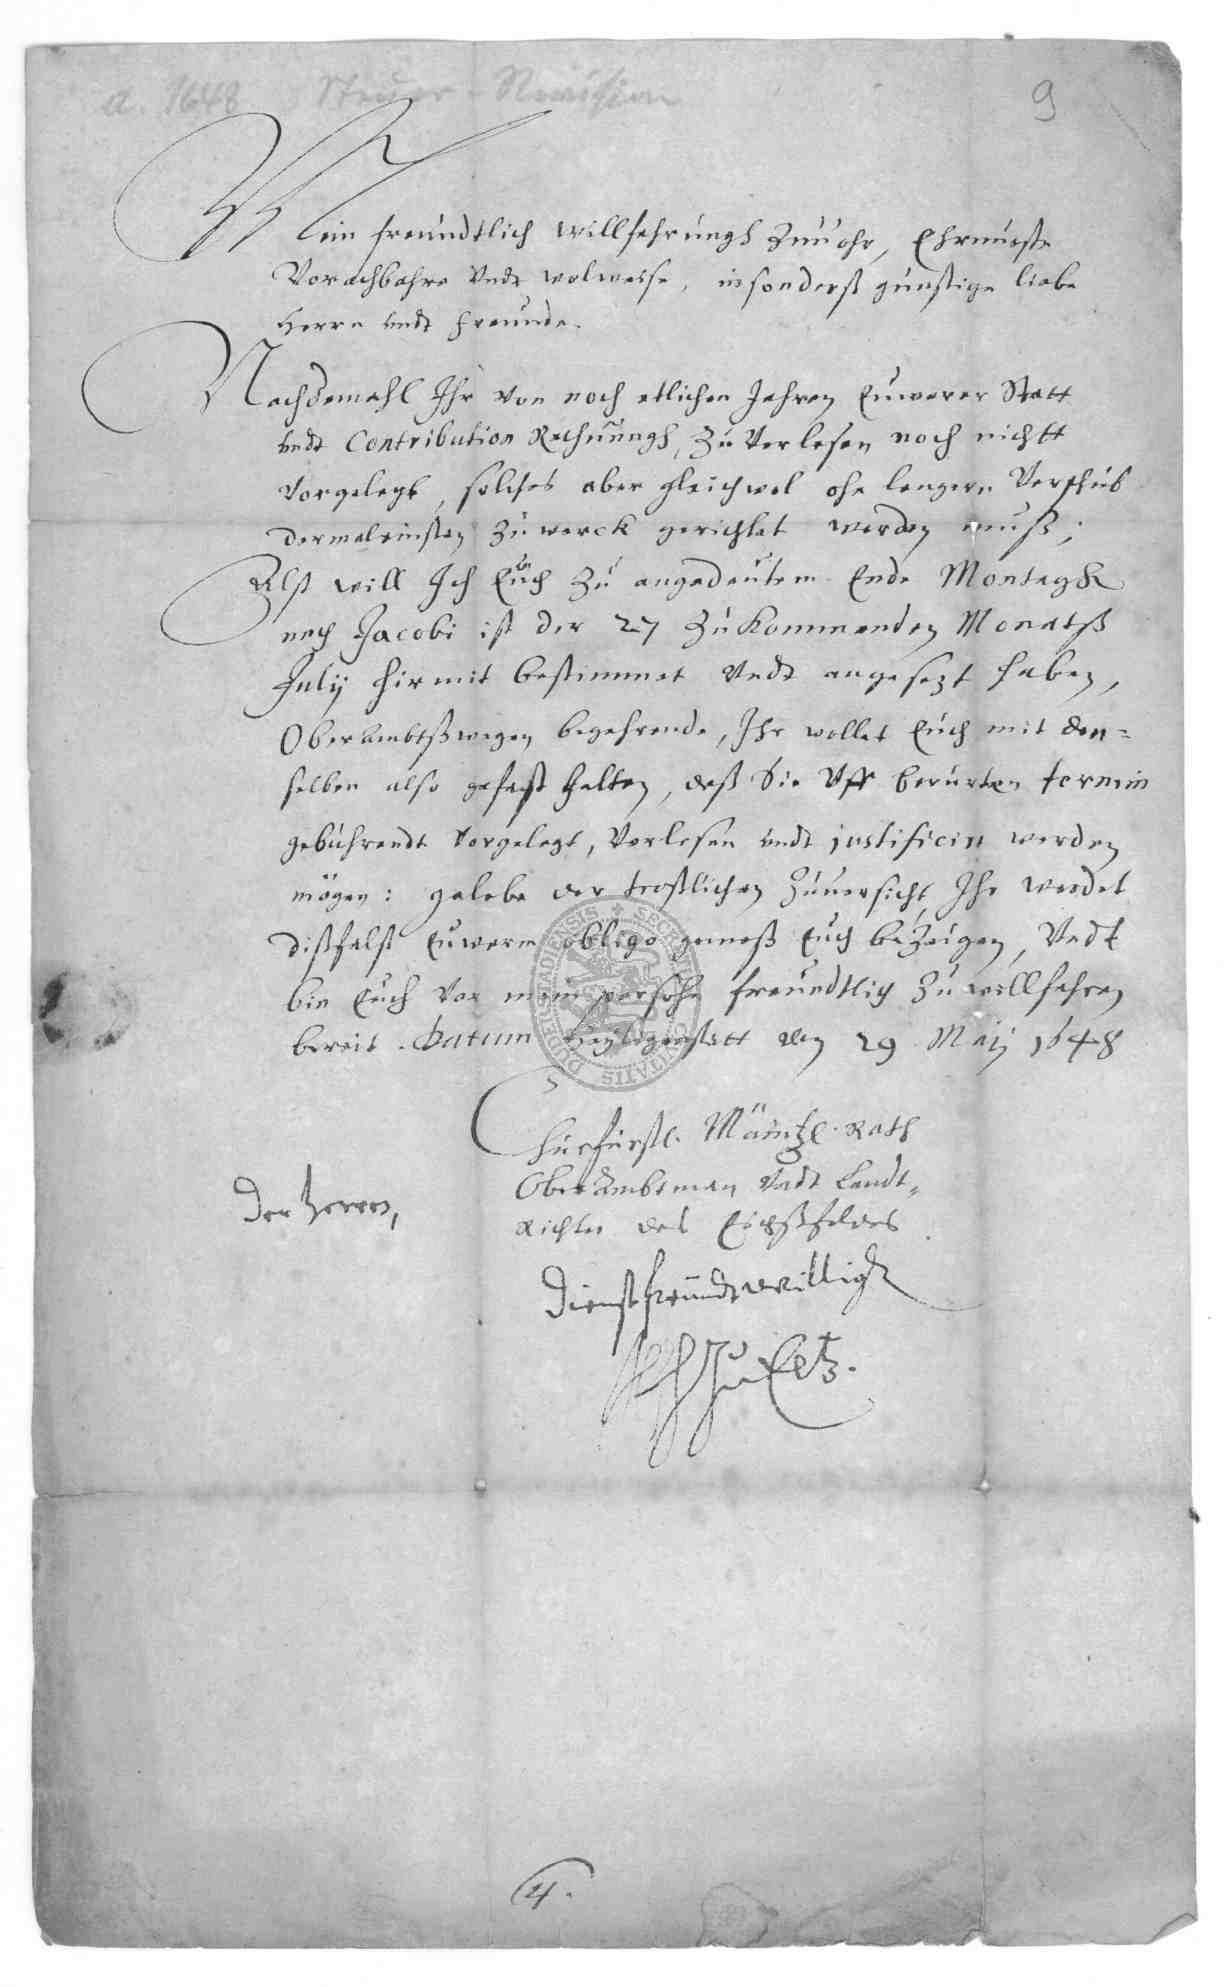 a. 1648 Steuer-Revision
9
Mein freundtlich willfehrungh zuuohr, Ehrnueste
Vorachbahre undt wolweise, insonderß günstige liebe
Herrn undt Freunde.
Nachdemahl Ihr von noch etlichen Jahren Euwerer Statt
undt Contribution Rechnungh, zu verlesen noch nichtt
vorgelegt, solches aber gleichwol ohn lengern Verschub
dermaleinsten zu werck gerichtet werden muß;
Alß will Ich Euch zu angedeutem Ende Montagh
nach Jacobi ist der 27 zukommenden Monatß
July hirmit bestimmet undt angesezt haben,
Oberambtßwegen begehrende, Ihr wollet Euch mit den=
selben also gefast halten, daß Sie uff berürten termin
gebührendt vorgelegt, verlesen undt justificirt werden
mögen: gelebe der trostlichen Zuuersicht, Ihr werdet
dißfalß Euwerm obligo gemeß Euch bezeigen, Undt
bin Euch vor mein persohn freundtlich zu willfahren
bereit. Datum Heyligenstatt den 29 Maij 1648
Churfürstl. Mäintzl. Rath
Oberambtman undt Landt=
Richter des Eichßfeldes
Der Herren,
Dienstfreundtwilligh
zu Eltz.
SECRETUM CIVITATIS DUDERSTADIENSIS
4.